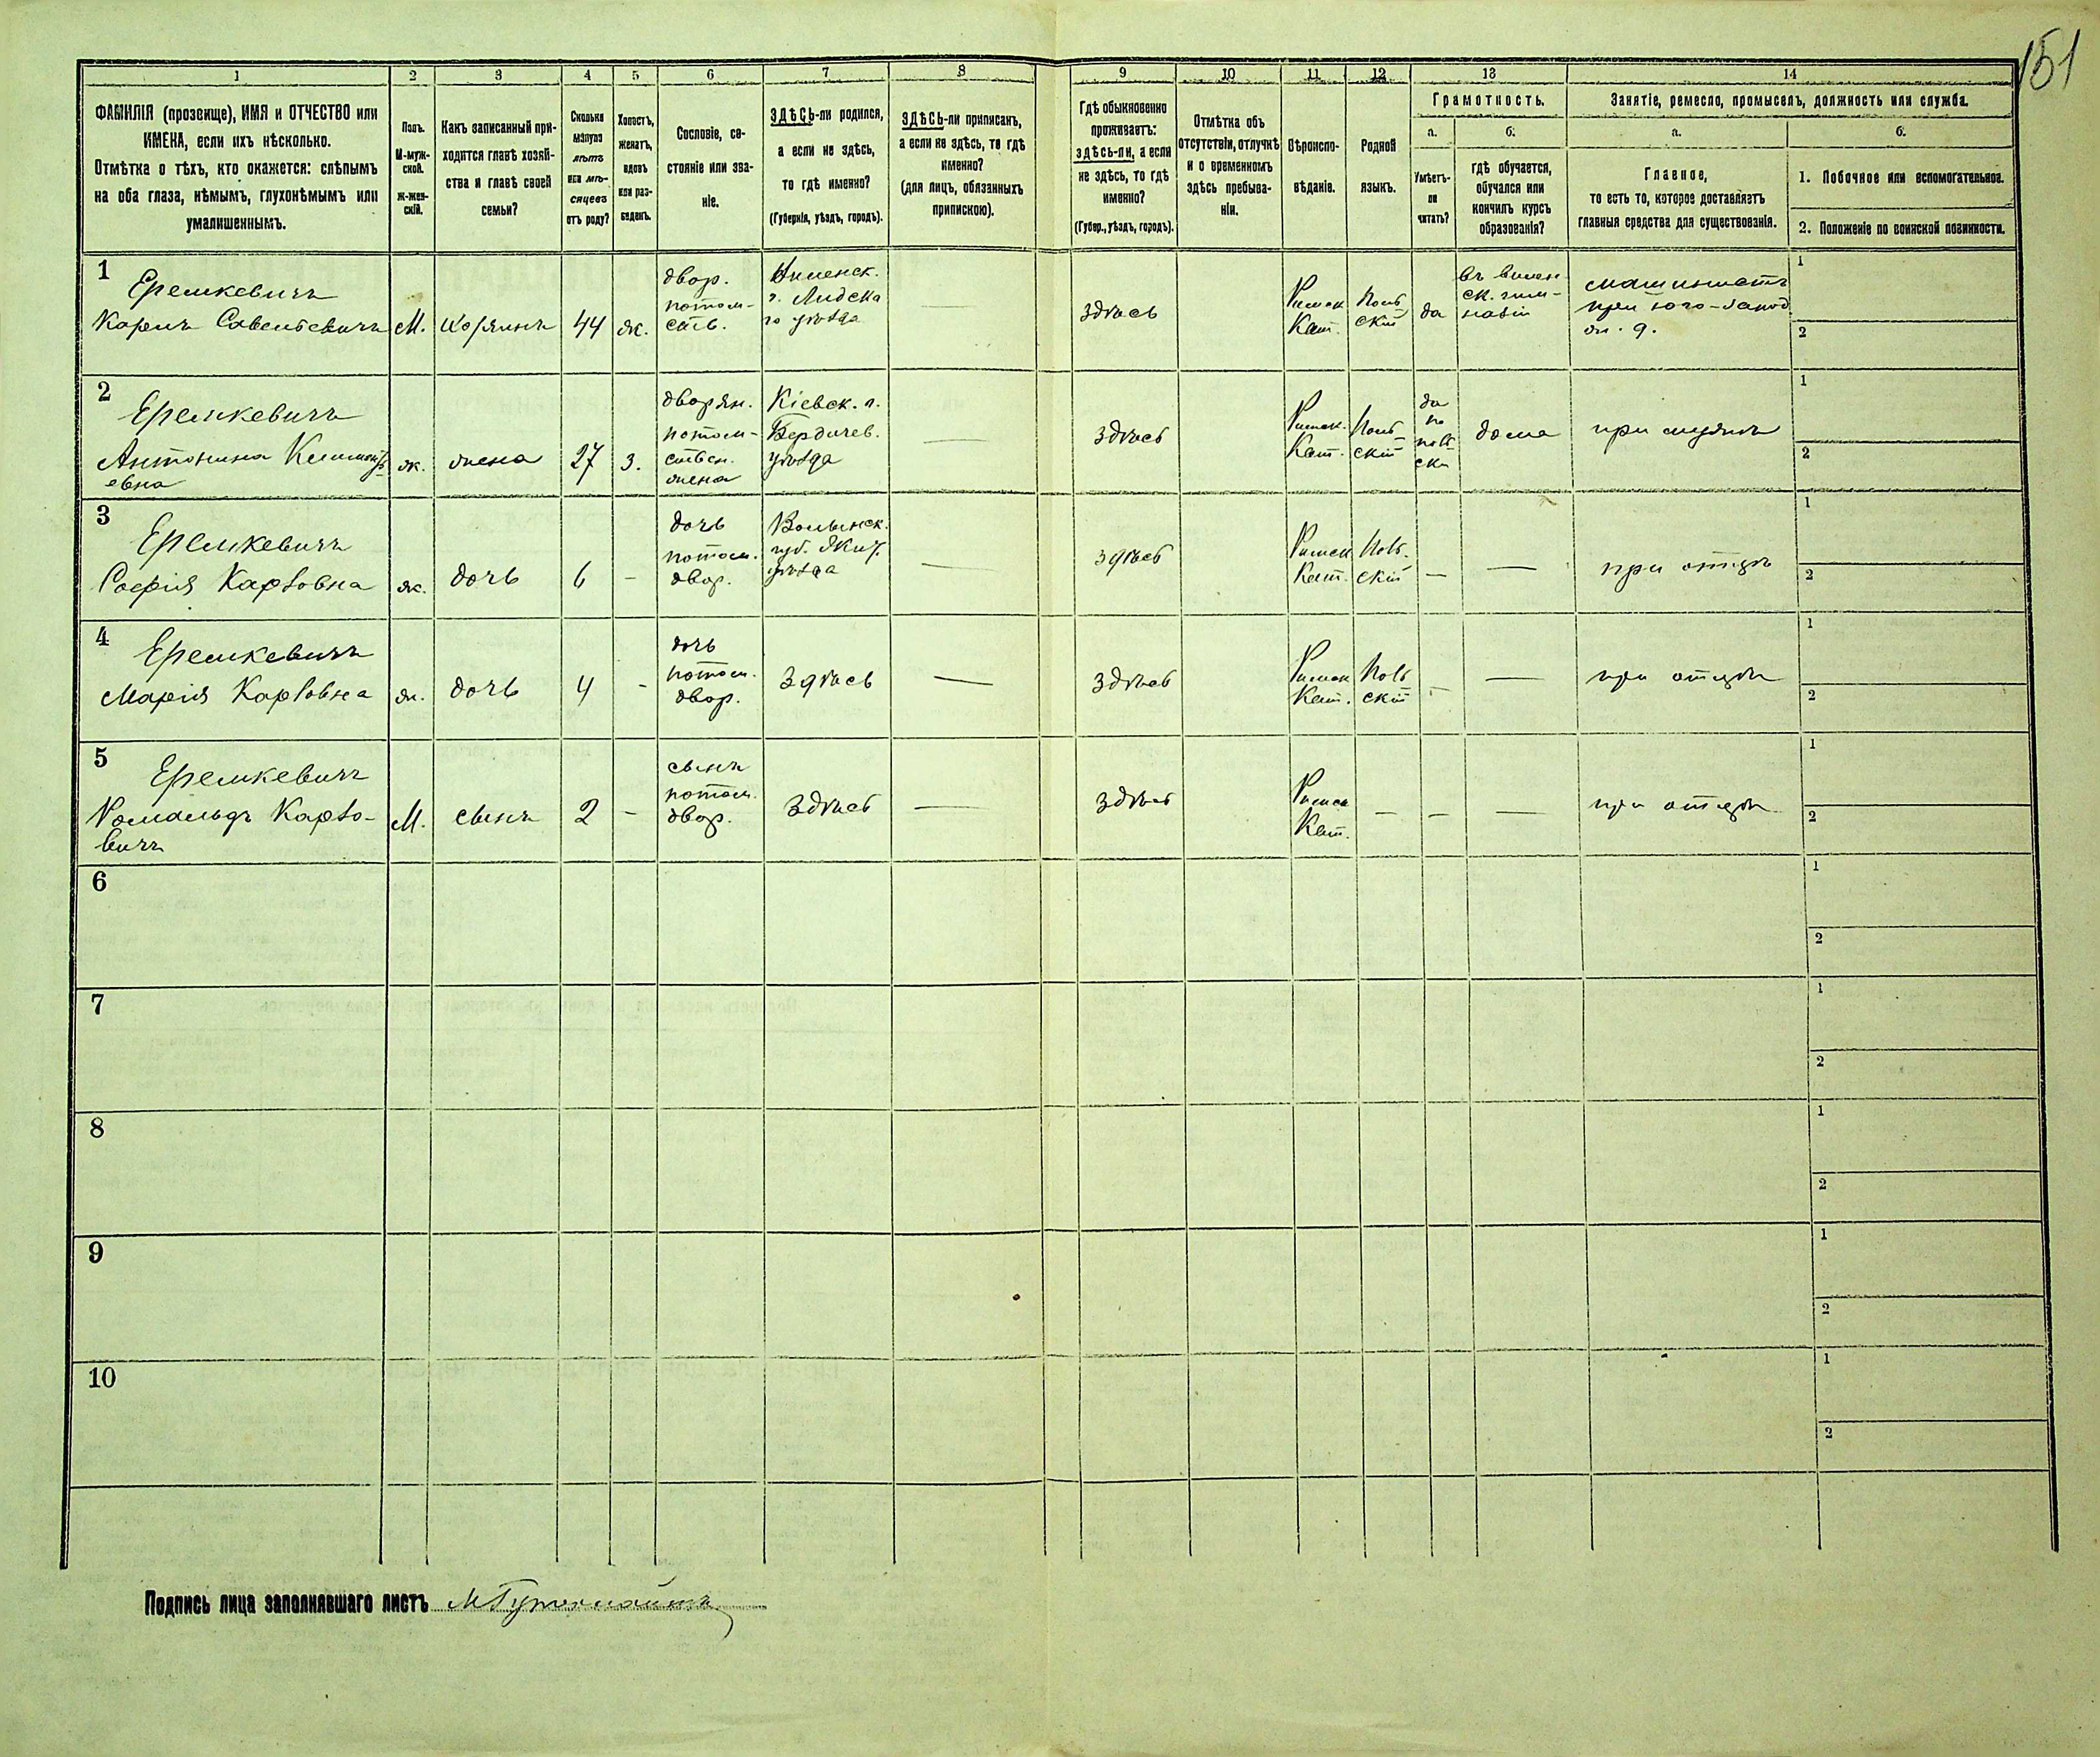 151
1 2 3 4 5 6 7 8 9 10 11 12 13 14
ФАМИЛІЯ (прозвище), ИМЯ и ОТЧЕСТВО или
ИМЕНА, если ихъ нѣсколько.
Отмѣтка о тѣхъ, кто окажется: слѣпымъ
на оба глаза, нѣмымъ, глухонѣмымъ или
умалишеннымъ.
Полъ.
М-муж-
ской.
Ж-жен-
скій.
Какъ записанный при-
ходится главѣ хозяй-
ства и главѣ своей
семьи?
Сколько
минуло
лѣтъ
или мѣ-
сяцевъ
отъ роду?
Холостъ,
женатъ,
вдовъ
или раз-
веденъ.
Сословіе, со-
стояніе или зва-
ніе.
ЗДѢСЬ-ли родился,
а если не здѣсь,
то гдѣ именно?
(Губернія, уѣздъ, городъ).
ЗДѢСЬ-ли приписанъ,
а если не здѣсь, то гдѣ
именно?
(для лицъ, обязанныхъ
припискою).
Гдѣ обыкновенно
проживаетъ:
здѣсь-ли, а если
не здѣсь, то гдѣ
именно?
(Губер., уѣздъ, городъ).
Отмѣтка объ
отсутствіи, отлучкѣ
и о временномъ
здѣсь пребыва-
ніи.
Вѣроиспо-
вѣданіе.
Родной
языкъ.
Грамотность.
а.
Умѣетъ-
ли
читать?
б.
гдѣ обучается,
обучался или
кончилъ курсъ
образованія?
Занятіе, ремесло, промыселъ, должность или служба.
а.
Главное,
то есть то, которое доставляетъ
главныя средства для существованія.
б.
1. Побочное или вспомогательное.
2. Положеніе по воинской повинности.
1
Еремкевичъ
Карлъ Савельевичъ
М.
хозяинъ
44
ж.
двор.
потом-
ств.
Виленск.
г. Лидска
го уѣзда
здѣсь
Римск
Кат.
Поль
скій
да
въ вилен
ск. гим-
назіи
машинистъ
при Юго-Запад
ж. д.
1
2
2
Еремкевичъ
Антонина
евна
ж.
жена
27
з.
дворян.
потом-
ствен.
жена
Кіевск. г.
Бердичев.
уѣзда
здѣсь
Римск.
Кат.
Поль
скій
да
по
поль
ски
дома
при мужѣ
1
2
3
Еремкевичъ
Софія Карловна
ж.
дочь
6
-
дочь
потом.
двор.
Волынск.
губ. Жит.
уѣзда
здѣсь
Римск
Кат.
Поль.
скій
—
—
при отцѣ
1
2
4
Еремкевичъ
Марія Карловна
ж.
дочь
4
-
дочь
потом.
двор.
Здѣсь
—
здѣсь
Римск
Кат.
Поль
скій
-
—
при отцѣ
1
2
5
Еремкевичъ
Ромальдъ Карло-
вичъ
М.
сынъ
2
-
сынъ
потом.
двор.
Здѣсь
—
здѣсь
Римск
Кат.
—
—
—
при отцѣ
1
2
6
1
2
7
1
2
8
1
2
9
1
2
10
1
2
Подпись лица заполнявшаго листъ